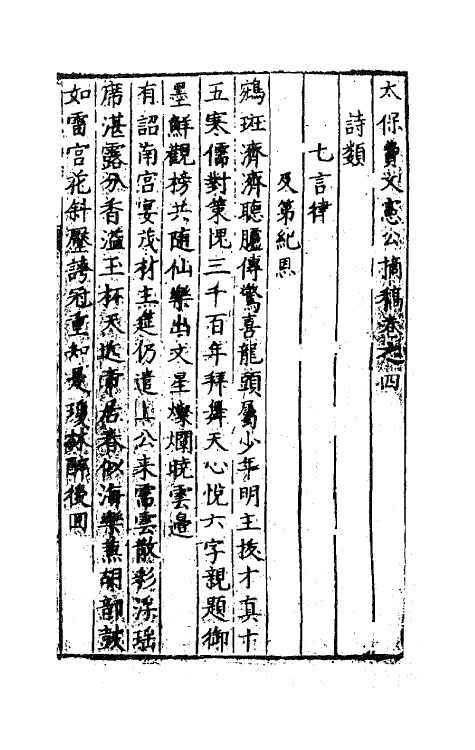 太保費文憲公摘稿卷之四
詩類
七言律
及第紀恩
鵷班濟濟聽臚傳驚喜龍頭屬少年明主掄才真十
五寒儒對策愧三千百年拜舞天心悅六字親題御
墨鮮觀榜共隨仙樂出文星燦爛曉雲邊
有詔南宮宴茂材主筵仍遣上公來需雲散彩浮瑤
席湛露分香溢玉杯天近帝居春似海樂蕪胡部鼓
如雷宮花斜壓誇冠重知是瓊林醉後回